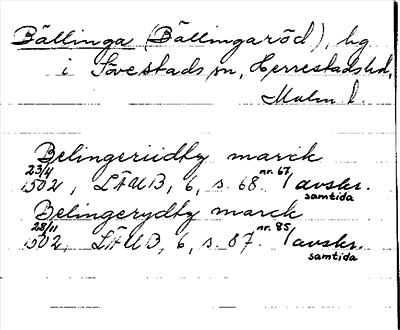 Bällinga (Bällingaröd), bg
i Sövestads sn, Herrestads hd,
Malm l.
Belingeriidby marck
23/4 1502, LÄUB, 6, s. 68 nr. 67 / avskr. samtida
Belingerydby marck
28/11 1502, LÄUB, 6, s. 87. nr. 85 / avskr. samtida